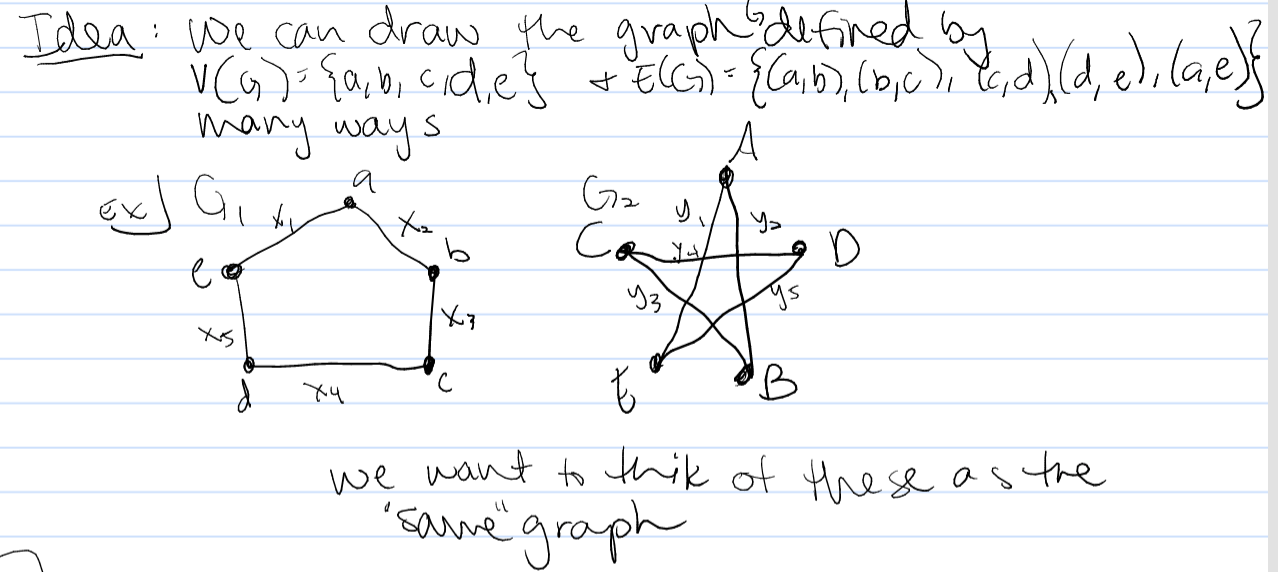 Idea: We can draw the graph G defined by
V(G) = {a, b, c, d, e} + E(G) = {(a,b), (b,c), (c,d), (d,e), (a,e)}
many ways
Ex] G₁ a G₂ A
x₁ x₂ y₁ y₂
e b C y₄ D
x₅ x₃ y₃ y₅
d x₄ c E B
we want to thik of these as the
"same" graph